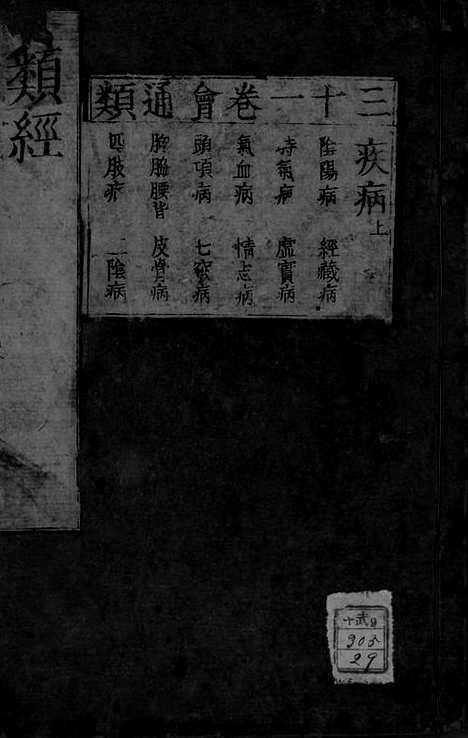 三十一卷會通類
疾病上
陰陽病 經藏病
時氣病 虛實病
氣血病 情志病
頭項病 七竅病
胸脇腰背 皮骨病
四肢病 二陰病
類經
305
29